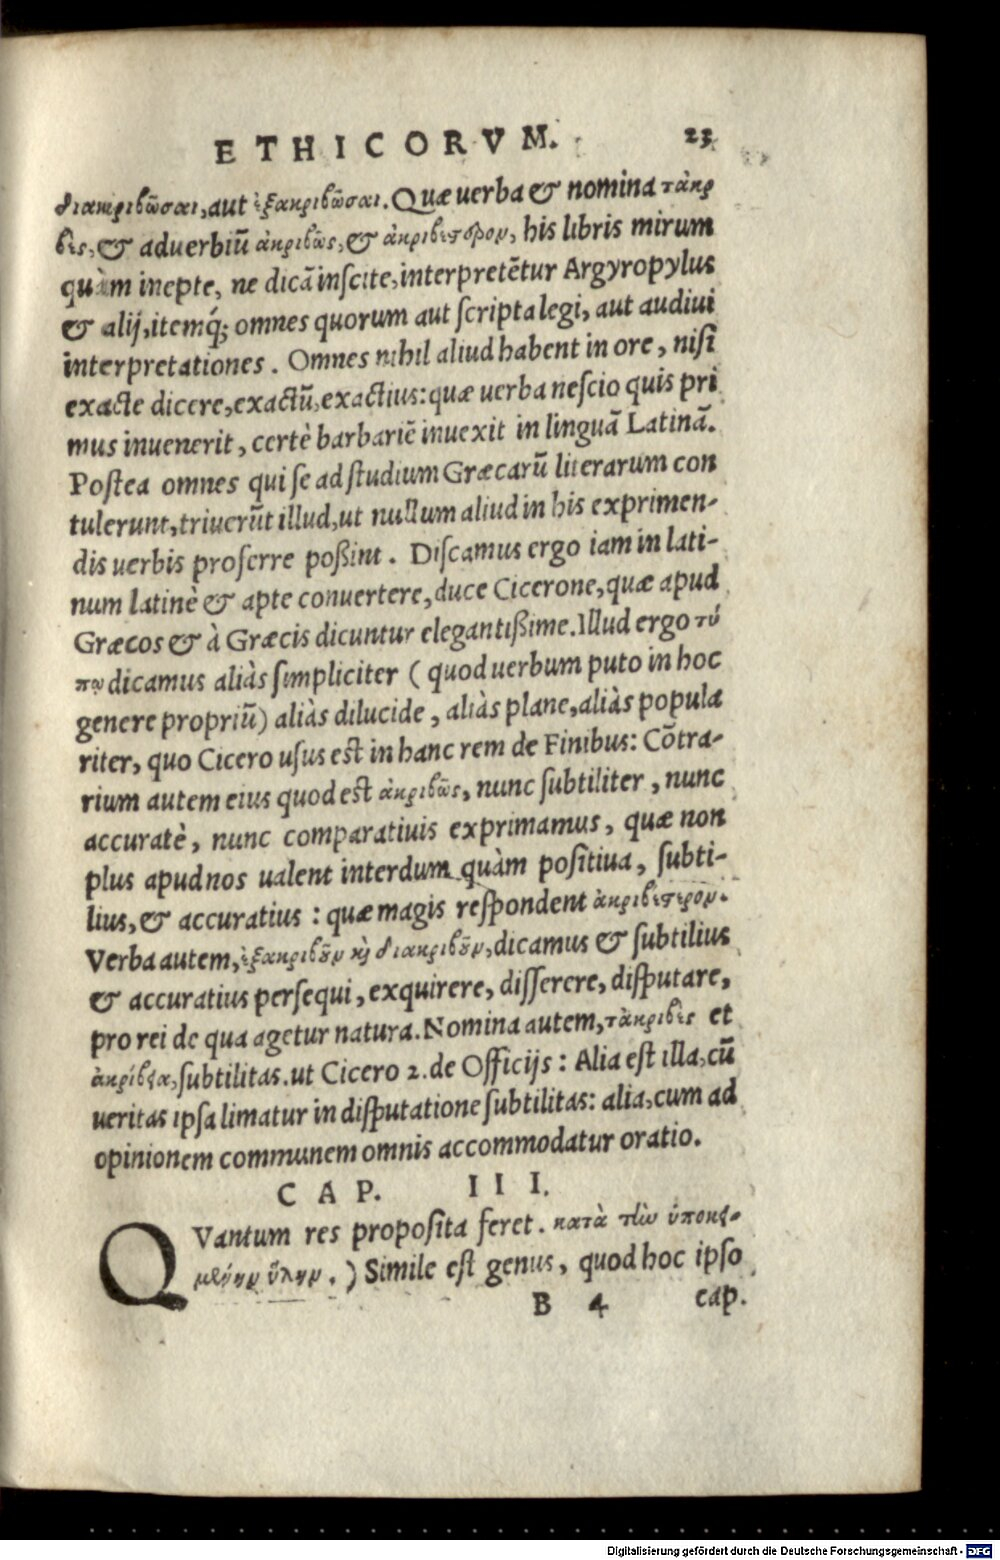 ETHICORVM. 23
διακριβῶσαι, aut ἐξακριβῶσαι. Quæ uerba & nomina τἀκρ
βὲς, & aduerbiũ ἀκριβῶς, & ἀκριβέστερον, his libris mirum
quàm inepte, ne dicã inſcite, interpretẽtur Argyropylus
& alij, itemq́; omnes quorum aut ſcripta legi, aut audiui
interpretationes. Omnes nihil aliud habent in ore, niſi
exacte dicere, exactũ, exactius: quæ uerba neſcio quis pri
mus inuenerit, certè barbariẽ inuexit in linguã Latinã.
Poſtea omnes qui ſe ad ſtudium Græcarũ literarum con
tulerunt, triuerũt illud, ut nullum aliud in his exprimen-
dis uerbis proferre poßint. Diſcamus ergo iam in lati-
num latinè & apte conuertere, duce Cicerone, quæ apud
Græcos & à Græcis dicuntur elegantißime. Illud ergo τύ
πῳ dicamus aliàs ſimpliciter ( quod uerbum puto in hoc
genere propriũ) aliàs dilucide, aliàs plane, aliàs popula
riter, quo Cicero uſus eſt in hanc rem de Finibus: Cõtra-
rium autem eius quod eſt ἀκριβῶς, nunc ſubtiliter, nunc
accuratè, nunc comparatiuis exprimamus, quæ non
plus apud nos ualent interdum quàm poſitiua, ſubti-
lius, & accuratius: quæ magis reſpondent ἀκριβέστερον.
Verba autem, ἐξακριβοῦν καὶ διακριβοῦν, dicamus & ſubtilius
& accuratius perſequi, exquirere, differere, diſputare,
pro rei de qua agetur natura. Nomina autem, τἀκριβὲς et
ἀκρίβεια, ſubtilitas. ut Cicero 2. de Officijs: Alia eſt illa, cũ
ueritas ipſa limatur in diſputatione ſubtilitas: alia, cum ad
opinionem communem omnis accommodatur oratio.
CAP. III.
QVantum res propoſita feret. κατὰ τὴν ὑποκει-
μένην ὕλην. ) Simile eſt genus, quod hoc ipſo
B 4 cap.
Digitalisierung gefördert durch die Deutsche Forschungsgemeinschaft - DFG